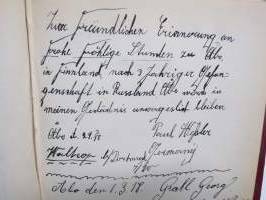 Zur Freundlichen Erinnerung an
frohe fröhlige Stunden zu Åbo
in Finnland, nach 3 Jähriger Gefan-
genschaft in Russland Åbo wird in
meinen Gedächtnis
bleiben
Åbo
Paul
Waltrop b/Dortmund Germany
Abo den 1.3.18. Grall Georg